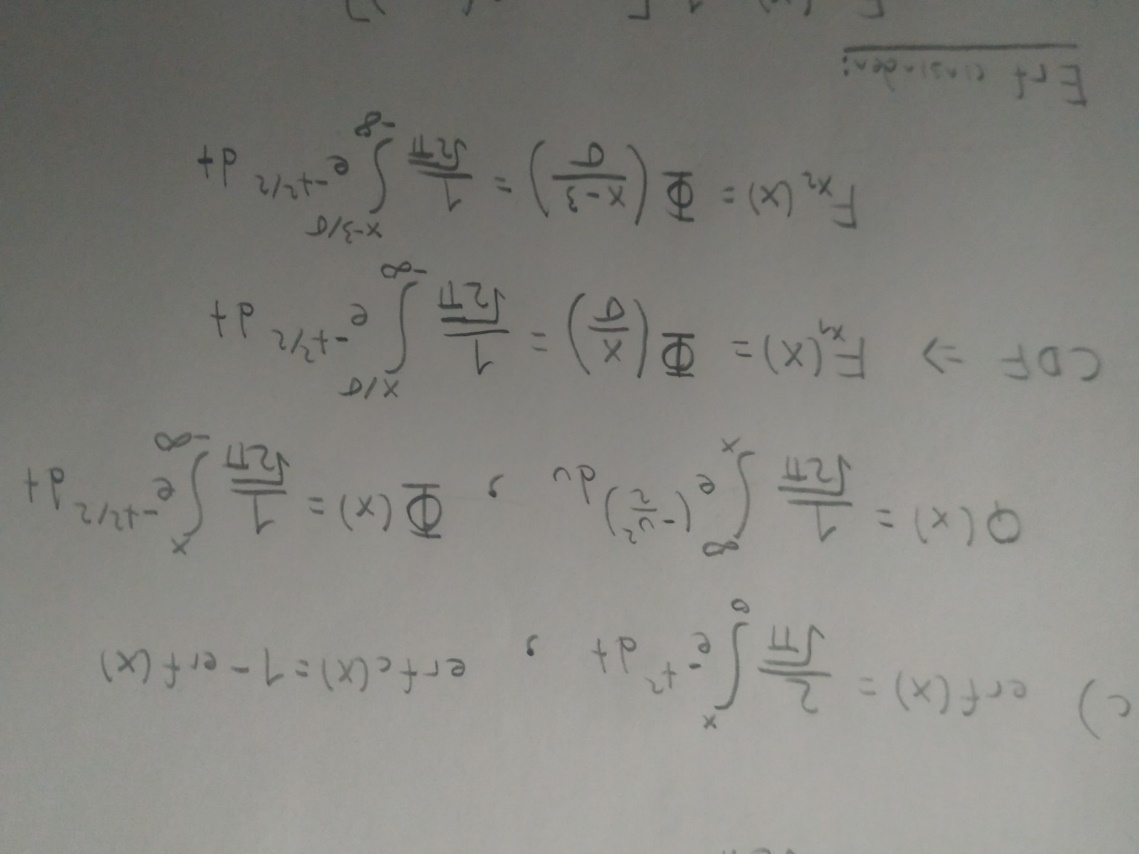 c) erf(x) = 2/√π ∫₀ˣ e^(-t²) dt , erfc(x) = 1 - erf(x)
Q(x) = 1/√2π ∫ₓ^∞ e^(-u²/2) du , Φ(x) = 1/√2π ∫_-∞^x e^(-t²/2) dt
CDF => F_x₁(x) = Φ(x/σ) = 1/√2π ∫_-∞^(x/σ) e^(-t²/2) dt
F_x₂(x) = Φ(x-3/σ) = 1/√2π ∫_-∞^(x-3/σ) e^(-t²/2) dt
Erf